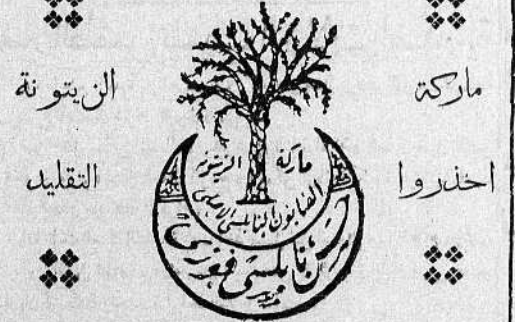 ماركة الزيتونة
احذروا التقليد
ماركة الزيتونة
الصابون النابلسي الاصلي
حسن نابلسي فوزي